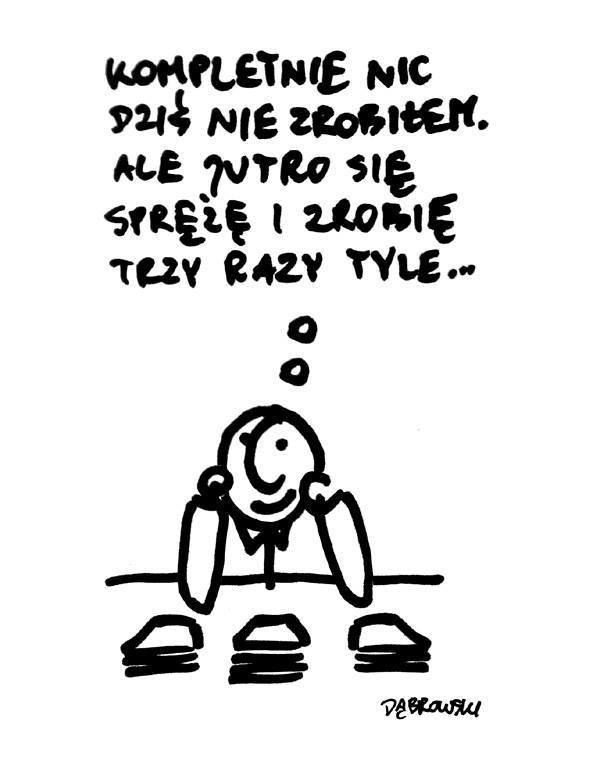 KOMPLETNIE NIC
DZIŚ NIE ZROBIŁEM.
ALE JUTRO SIĘ
SPRĘŻĘ I ZROBIĘ
TRZY RAZY TYLE...
DĄBROWSKI